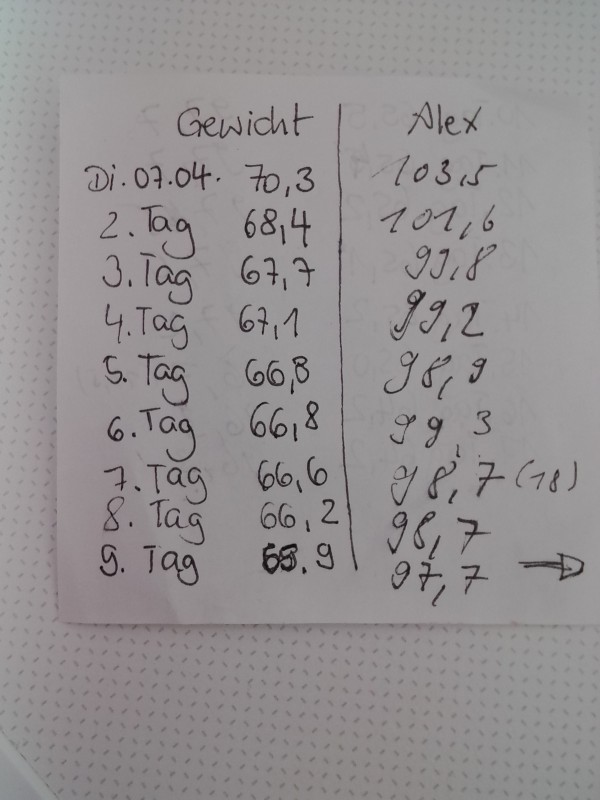 Gewicht Alex
Di. 07.04. 70,3 103,5
2. Tag 68,4 101,6
3. Tag 67,7 99,8
4. Tag 67,1 99,2
5. Tag 66,8 98,9
6. Tag 66,8 99,3
7. Tag 66,6 98,7 (18)
8. Tag 66,2 98,7
9. Tag 65.9 97,7 ⇒